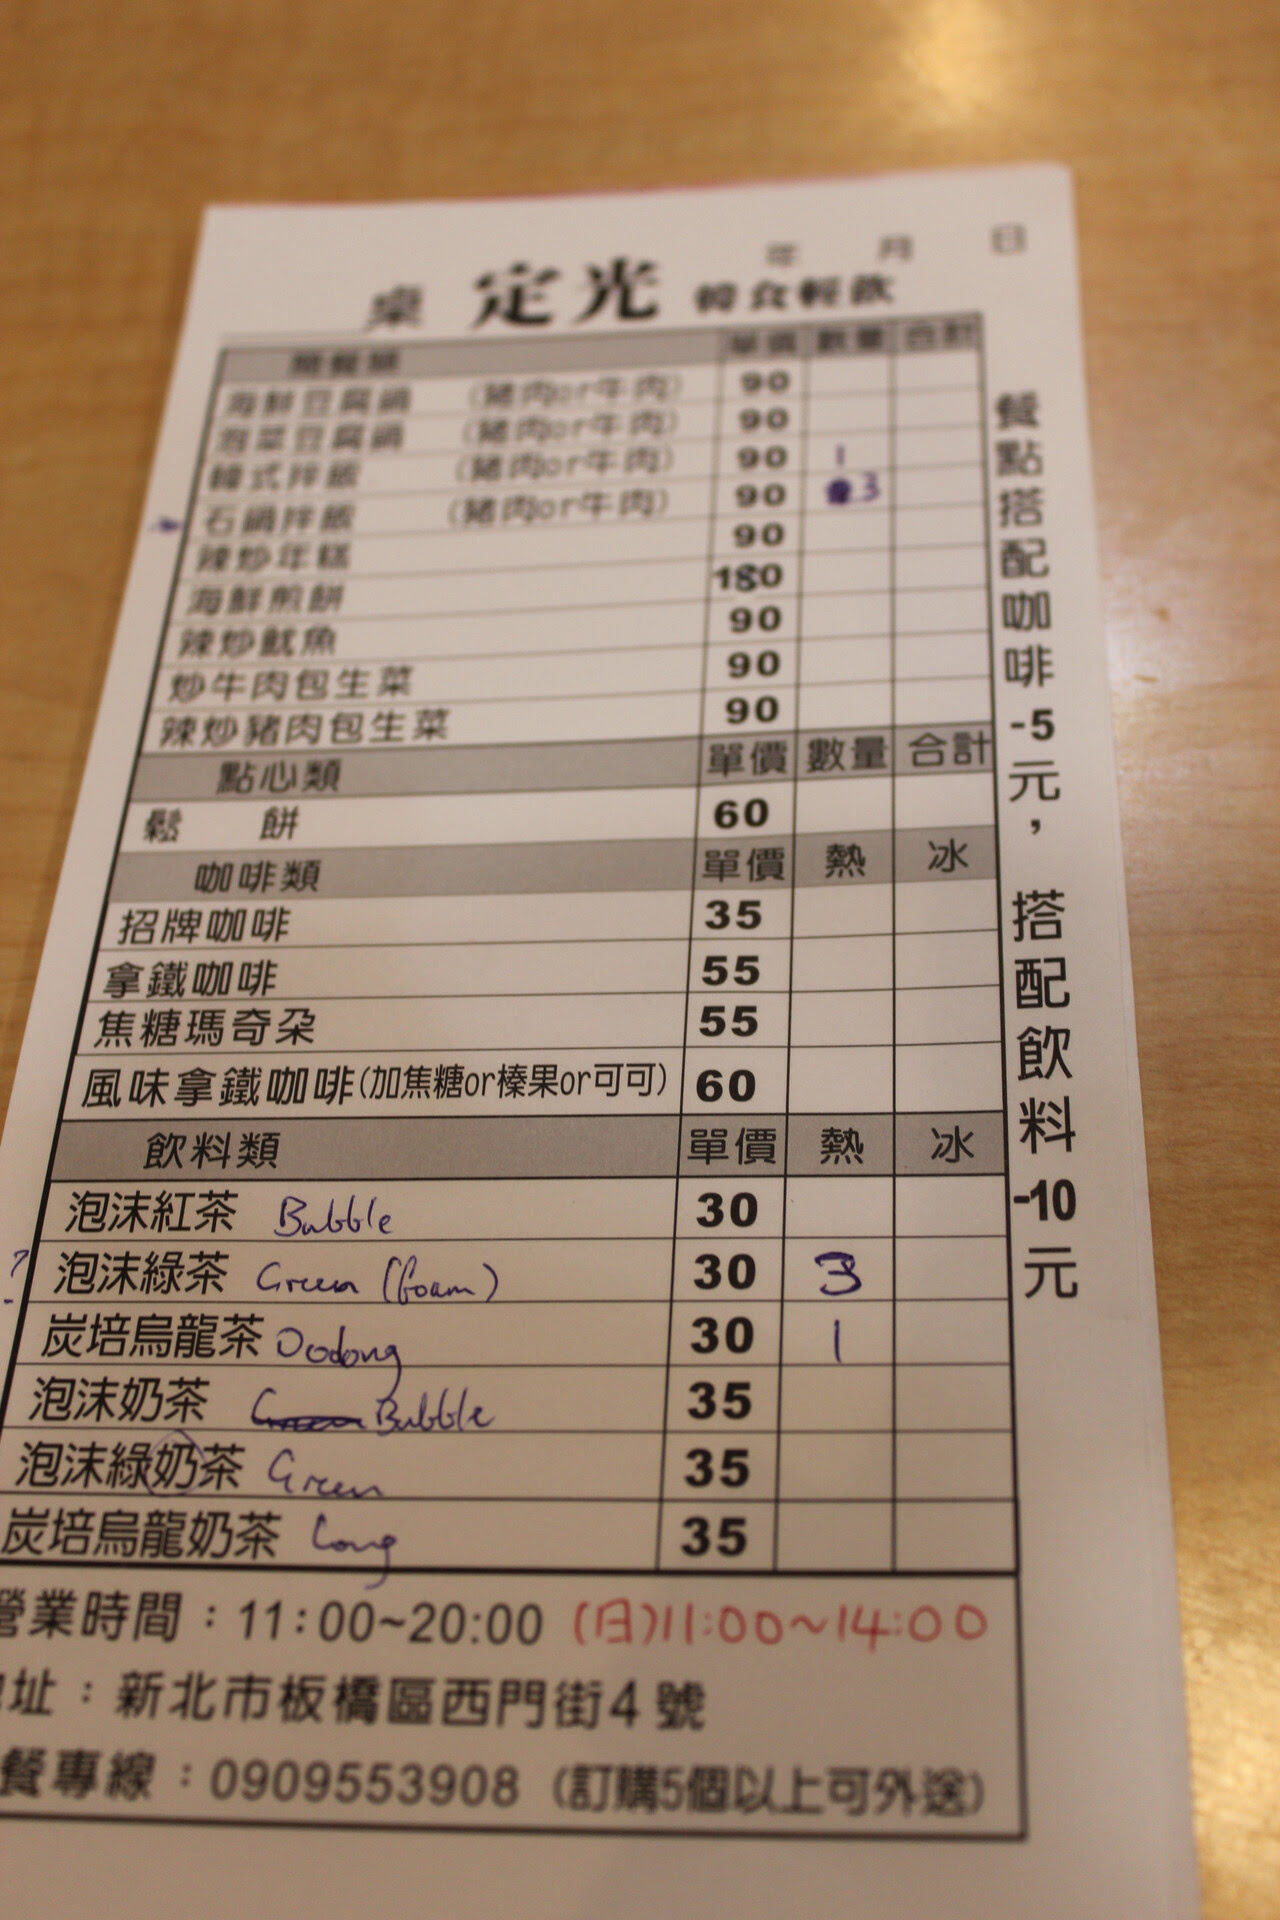 年 月 日
桌 定光 韓食輕飲
簡餐類 單價 數量 合計
海鮮豆腐鍋 (豬肉or牛肉) 90
泡菜豆腐鍋 (豬肉or牛肉) 90
韓式拌飯 (豬肉or牛肉) 90 1
石鍋拌飯 (豬肉or牛肉) 90 3
辣炒年糕 90
海鮮煎餅 180
辣炒魷魚 90
炒牛肉包生菜 90
辣炒豬肉包生菜 90
點心類 單價 數量 合計
鬆 餅 60
咖啡類 單價 熱 冰
招牌咖啡 35
拿鐵咖啡 55
焦糖瑪奇朵 55
風味拿鐵咖啡(加焦糖or榛果or可可) 60
飲料類 單價 熱 冰
泡沫紅茶 Bubble 30
? 泡沫綠茶 Green (foam) 30 3
炭培烏龍茶 Oodong 30 1
泡沫奶茶 Bubble 35
泡沫綠奶茶 Green 35
炭培烏龍奶茶 Long 35
營業時間：11:00~20:00 (日)11:00~14:00
址：新北市板橋區西門街4號
餐專線：0909553908 (訂購5個以上可外送)
餐點搭配咖啡-5元，搭配飲料-10元